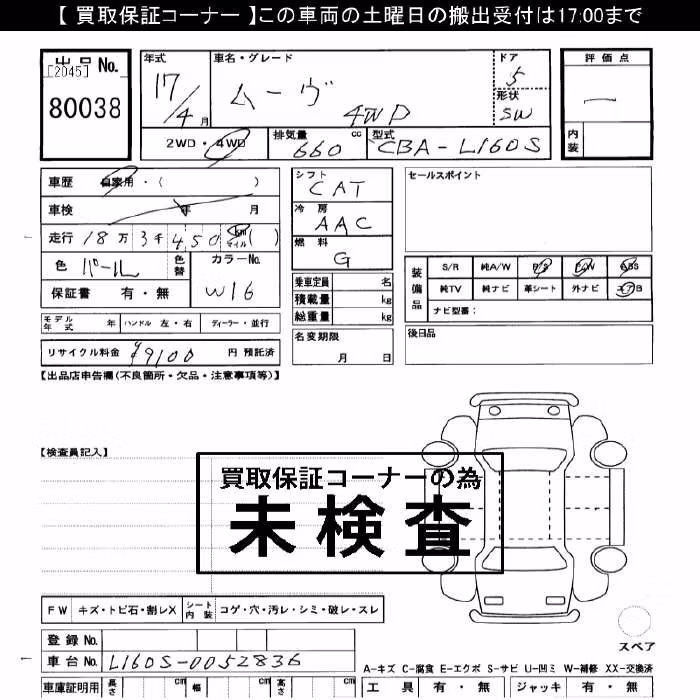 【 買取保証コーナー 】この車両の土曜日の搬出受付は17:00まで
出品 No.
[2045]
80038
年式
17/4月
車名・グレード
ムーヴ
4WD
ドア
5
形状
SW
評価点
—
内装
2WD・4WD
排気量
660 cc
型式
CBA-L160S
車歴 自家用・( )
車検 年 月
走行 18万 3千 450 km マイル ( )
色 パール 色替
カラーNo.
W16
保証書 有・無
シフト
CAT
冷房
AAC
燃料
G
乗車定員 名
積載量 kg
総重量 kg
セールスポイント
装備品
S/R 純A/W P/S P/W ABS
純TV 純ナビ 革シート 外ナビ エアB
ナビ型番:
モデル年式 年 ハンドル 左・右 ディーラー・並行
名変期限
月 日
後日品
リサイクル料金 ¥9100 円 預託済
【出品店申告欄(不良箇所・欠品・注意事項等)】
【検査員記入】
買取保証コーナーの為
未検査
FW キズ・トビ石・割レX シート内装 コゲ・穴・汚レ・シミ・破レ・スレ
スペア
登録 No.
車台 No. L160S-0052836
A-キズ C-腐食 E-エクボ S-サビ U-凹ミ W-補修 XX-交換済
車庫証明用 長さ cm 幅 cm 高さ cm
工具 有・無 ジャッキ 有・無